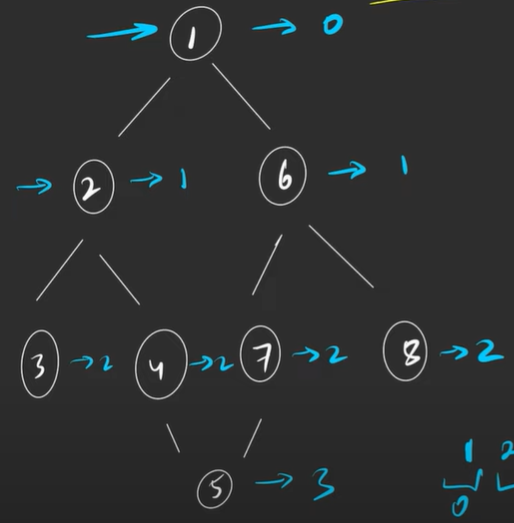 → 1 → 0
→ 2 → 1 6 → 1
3 → 2 4 → 2 7 → 2 8 → 2
5 → 3
1 2
0